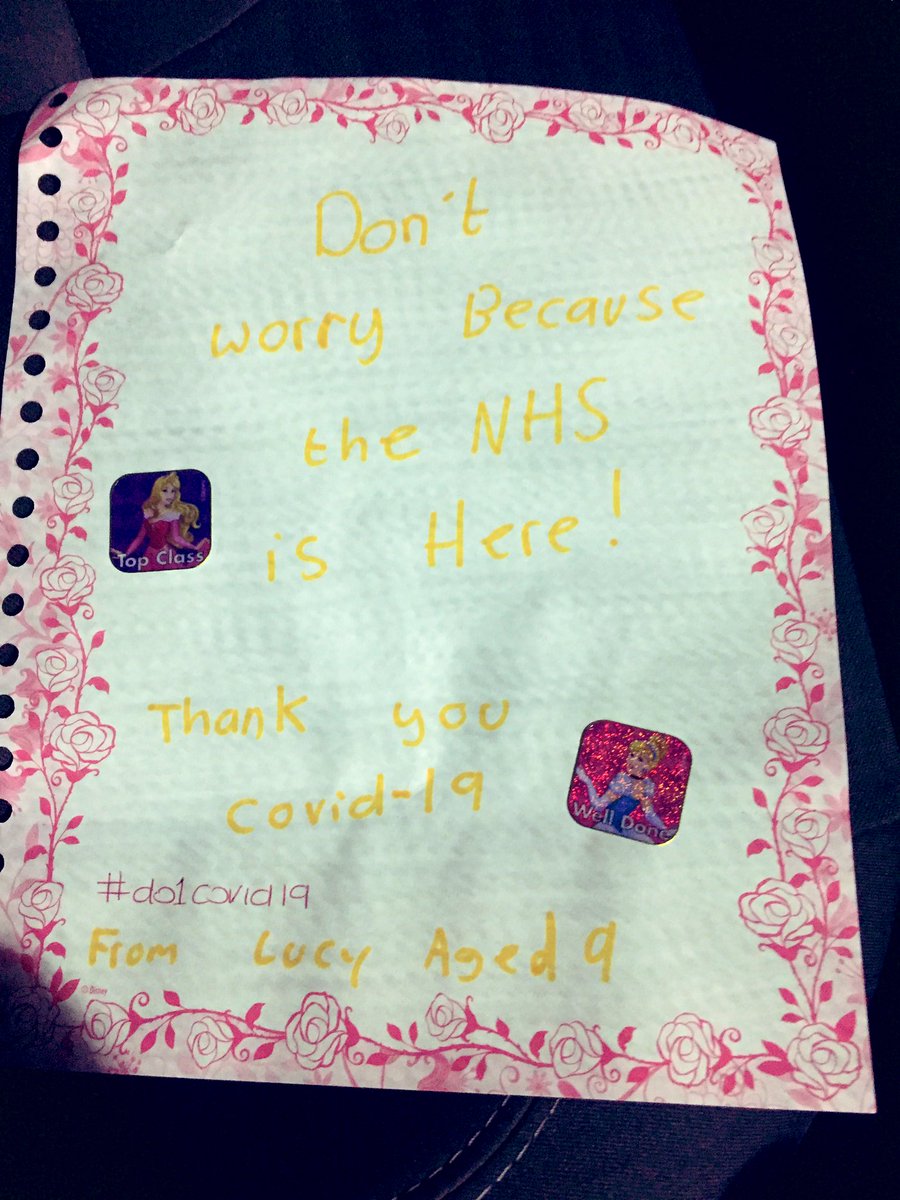 Don't
worry Because
the NHS
is Here!
Top Class
Thank you
covid-19
Well Done
#do1covid19
From Lucy Aged 9
© Disney